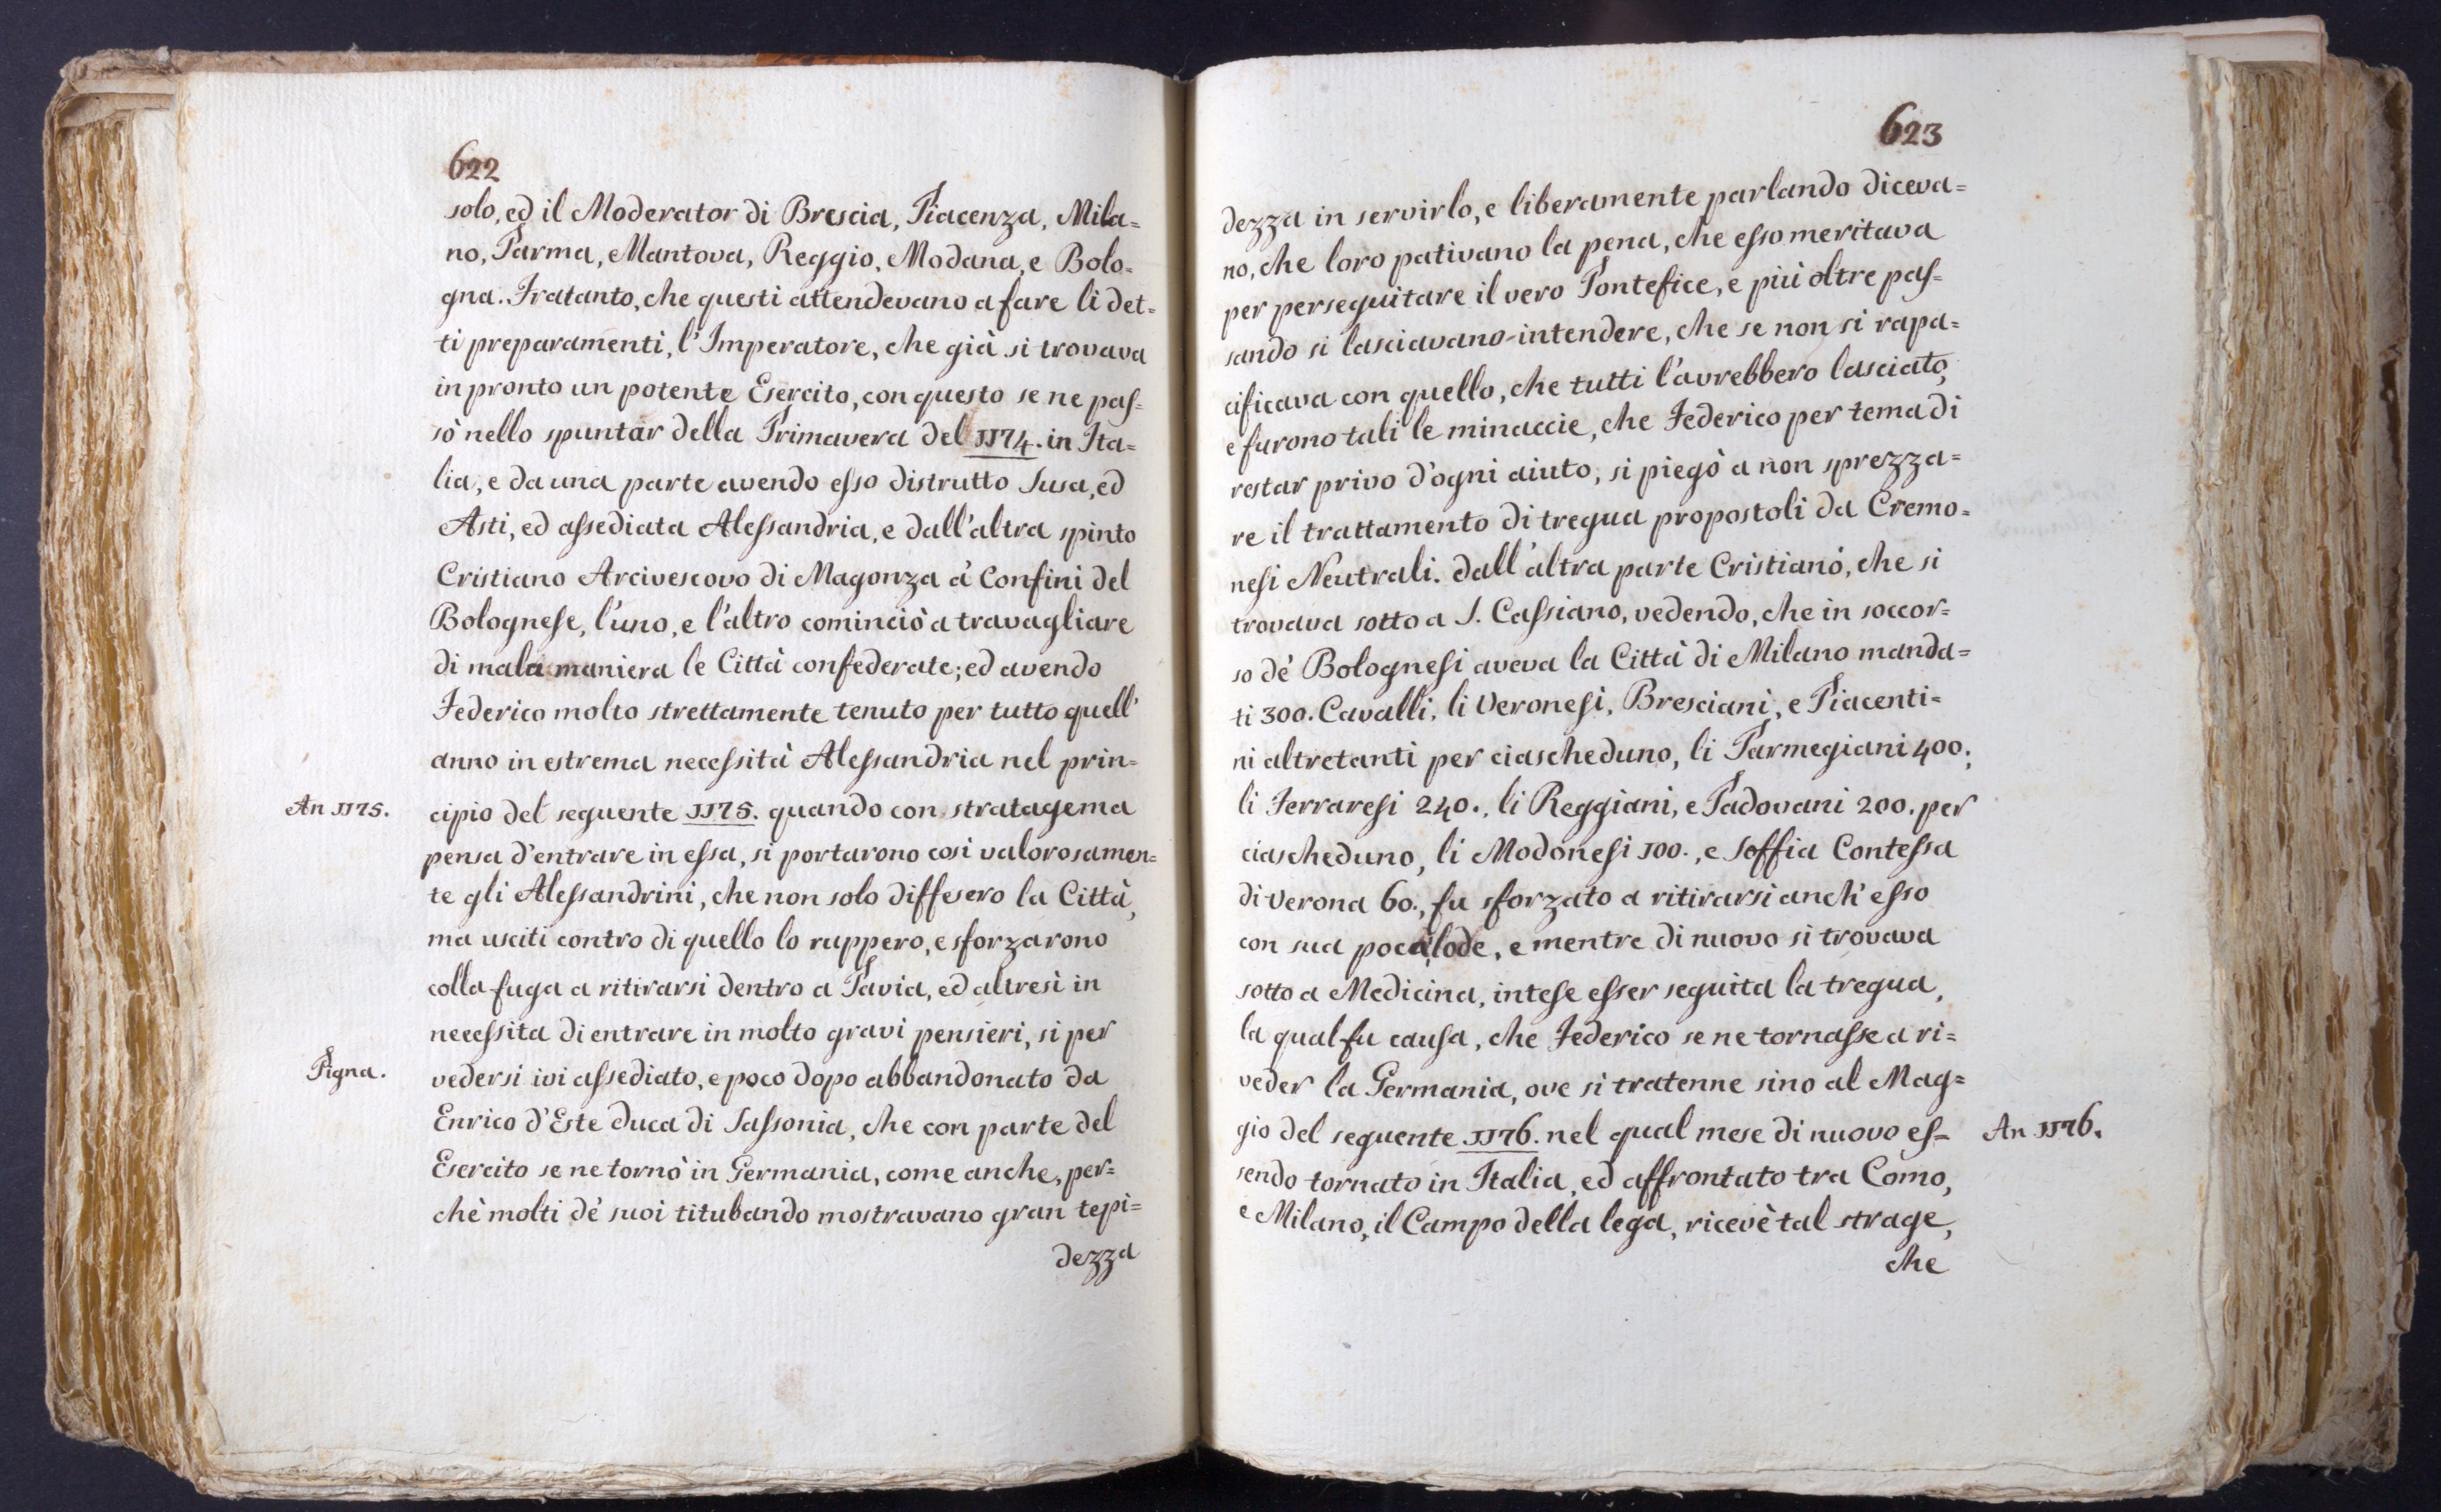 622
solo, ed il Moderator di Brescia, Piacenza, Mila=
no, Parma, Mantova, Reggio, Modana, e Bolo=
gna. Fratanto, che questi attendevano a fare li det=
ti preparamenti, l'Imperatore, che già si trovava
in pronto un potente Esercito, con questo se ne pas=
sò nello spuntar della Primavera del 1174. in Ita=
lia, e da una parte avendo esso distrutto Susa, ed
Asti, ed assediata Alessandria, e dall'altra spinto
Cristiano Arcivescovo di Magonza à Confini del
Bolognese, l'uno, e l'altro cominciò a travagliare
di mala maniera le Città confederate; ed avendo
Federico molto strettamente tenuto per tutto quell'
anno in estrema necessità Alessandria nel prin=
An 1175.
cipio del seguente 1175. quando con stratagema
pensa d'entrare in essa, si portarono così valorosamen=
te gli Alessandrini, che non solo diffesero la Città,
ma usciti contro di quello lo ruppero, e sforzarono
colla fuga a ritirarsi dentro a Pavia, ed altresì in
necessita di entrare in molto gravi pensieri, si per
Pigna.
vedersi ivi assediato, e poco dopo abbandonato da
Enrico d'Este Duca di Sassonia, che con parte del
Esercito se ne tornò in Germania, come anche, per=
chè molti dè suoi titubando mostravano gran tepi=
dezza
623
dezza in servirlo, e liberamente parlando diceva=
no, che loro pativano la pena, che esso meritava
per perseguitare il vero Pontefice, e più oltre pas=
sando si lasciavano intendere, che se non si rapa=
cificava con quello, che tutti l'avrebbero lasciato,
e furono tali le minaccie, che Federico per tema di
restar privo d'ogni aiuto, si piegò a non sprezza=
re il trattamento di tregua propostoli da Cremo=
nesi Neutrali. Dall'altra parte Cristianò, che si
trovava sotto a S. Cassiano, vedendo, che in soccor=
so dè Bolognesi aveva la Città di Milano manda=
ti 300. Cavalli, li Veronesi, Bresciani, e Piacenti=
ni altretanti per ciascheduno, li Parmegiani 400.,
li Ferraresi 240., li Reggiani, e Padovani 200. per
ciascheduno, li Modonesi 100., e Soffia Contessa
di Verona 60., fu sforzato a ritirarsi anch'esso
con sua poca lode, e mentre di nuovo si trovava
sotto a Medicina, intese esser seguita la tregua,
la qual fu causa, che Federico se ne tornasse a ri=
veder la Germania, ove si tratenne sino al Mag=
gio del seguente 1176. nel qual mese di nuovo es=
An 1176.
sendo tornato in Italia, ed affrontato tra Como,
e Milano, il Campo della lega, ricevè tal strage,
che